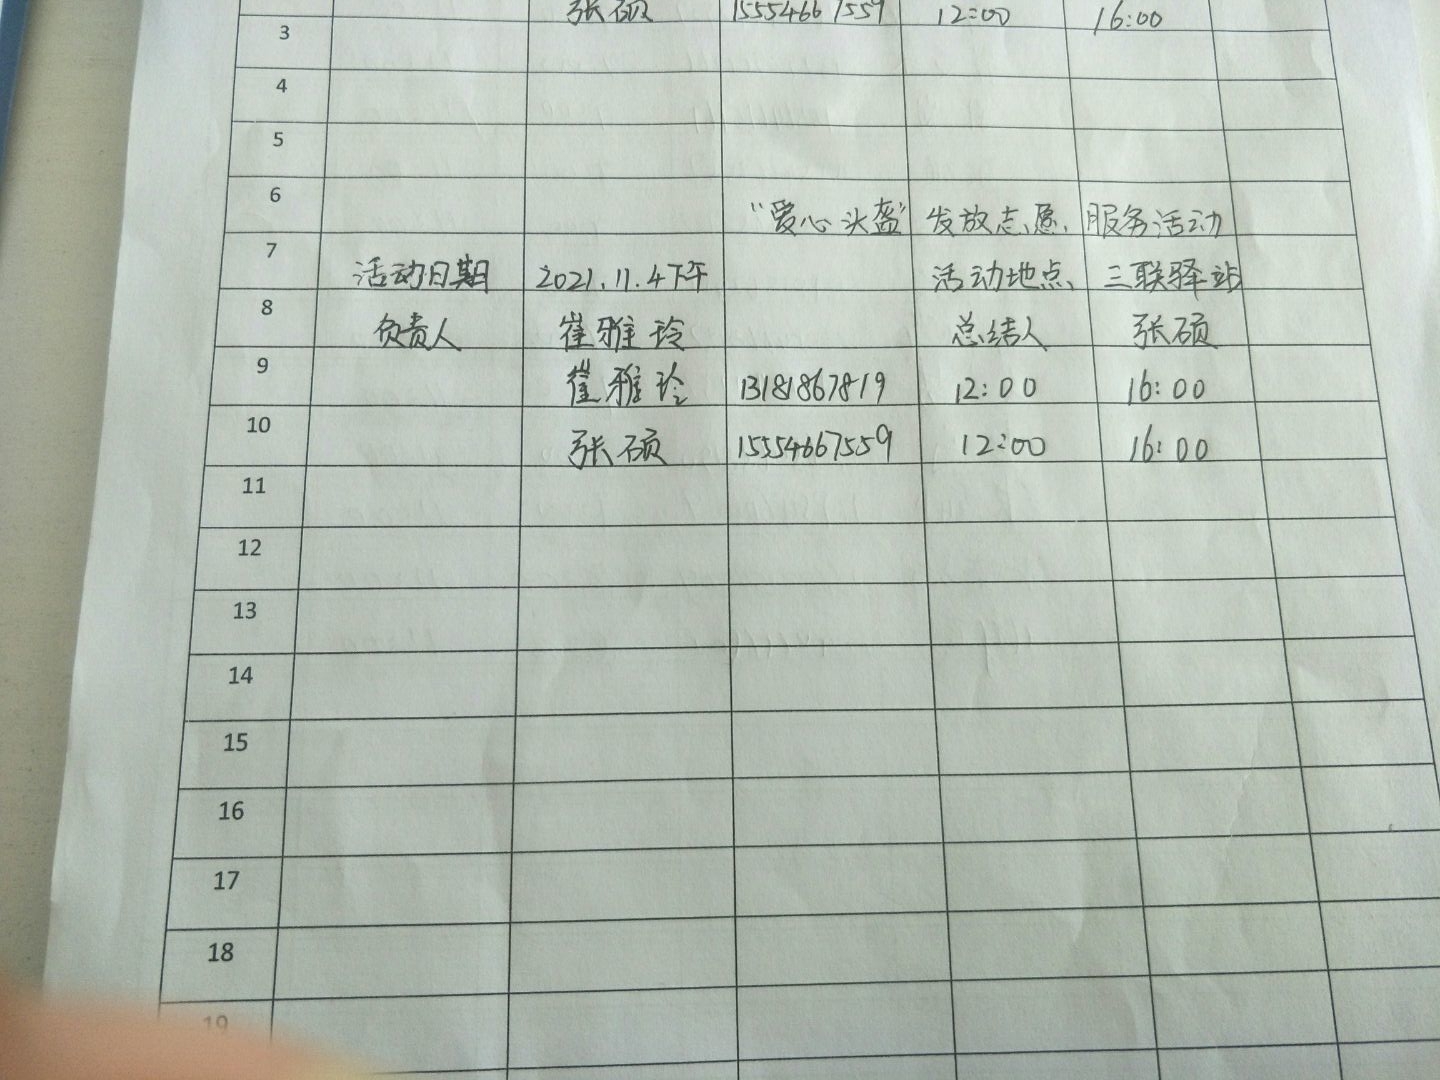 3 张硕 15554667559 12:00 16:00
4
5
6 “爱心头盔”发放志愿服务活动
7 活动日期 2021.11.4下午 活动地点 三联驿站
8 负责人 崔雅玲 总结人 张硕
9 崔雅玲 13181867819 12:00 16:00
10 张硕 15554667559 12:00 16:00
11
12
13
14
15
16
17
18
19